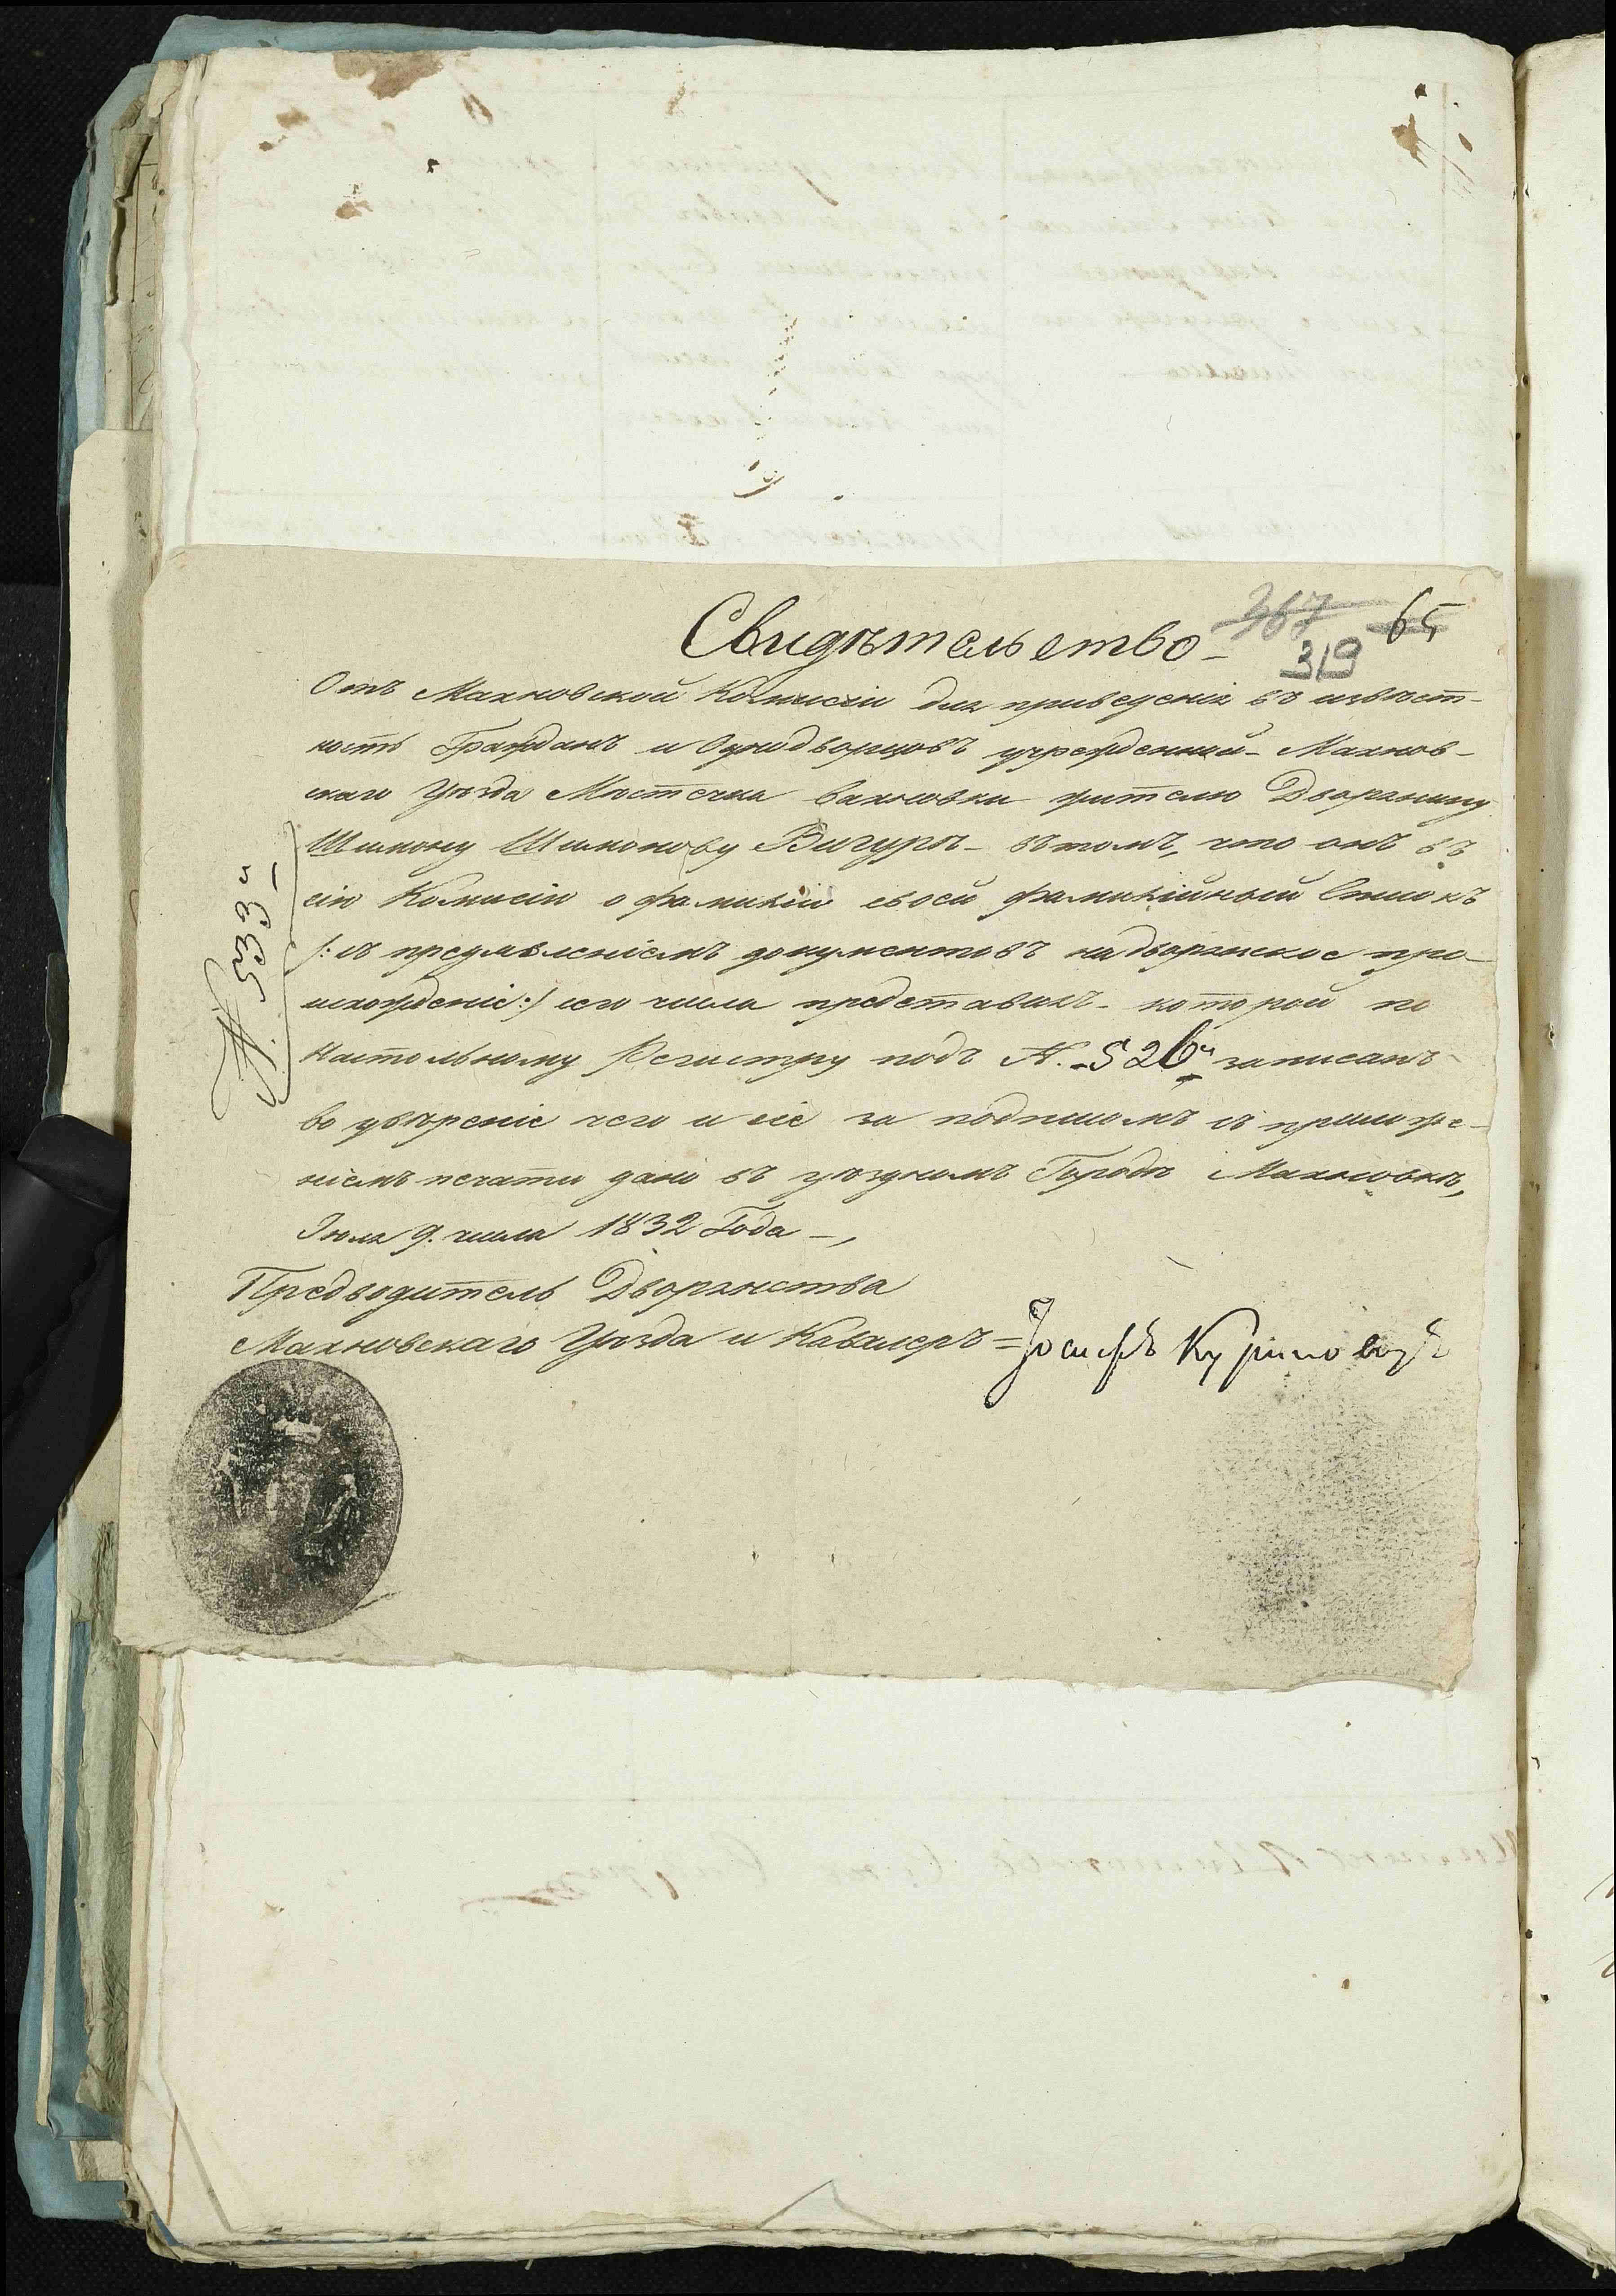 367 65
319
Свидѣтельство
Отъ Махновской Комисіи для приведенія въ извѣст-
ность Гражданъ и Однодворцовъ учрежденной Махнов-
скаго Уѣзда Мѣстечка Вахновки жителю Дворянину
Шимону Шимонову Вигурѣ въ томъ, что онъ въ
сію Комисію о фамиліи своей фамилійный Списокъ
/: съ предъявленіемъ документовъ на дворянское про-
исхожденіе :/ сего числа представилъ которой по
Настольному Регистру подъ N. 526м записанъ
во увѣреніе чего и сіе за подписомъ съ приложе-
ніемъ печати дано въ уѣздномъ Городѣ Махновкѣ,
Іюля 9. числа 1832 Года
Предводитель Дворянства
Махновскаго Уѣзда и Кавалеръ = Іосифъ
N. 533й